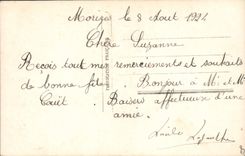 Mouzay le 8 Aout 1924
Chère Suzanne
Reçois tout mes remerciements et souhaits
de bonne fête. Bonjour à Mr et Me
Baisers affectueux d'une
amie.